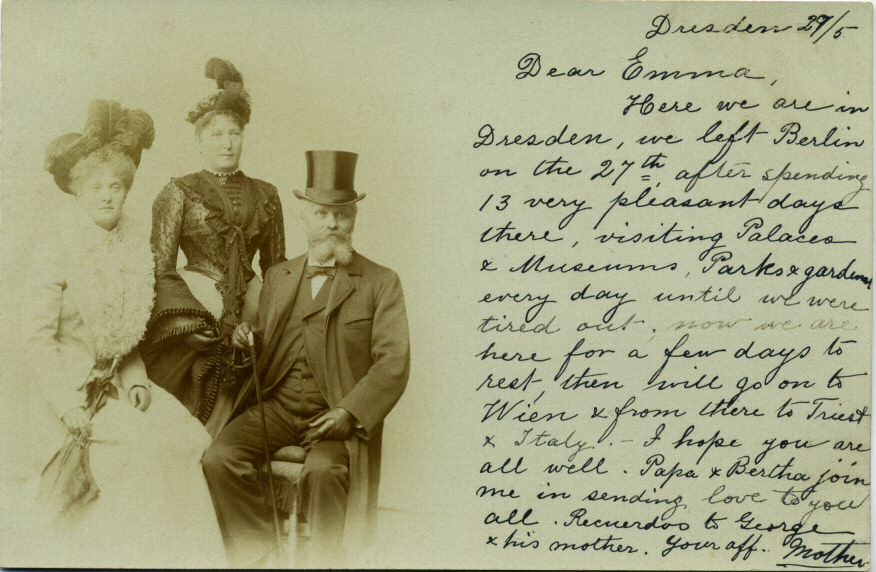 Dresden 29/5
Dear Emma,
Here we are in
Dresden, we left Berlin
on the 27th, after spending
13 very pleasant days
there, visiting Palaces
& Museums, Parks & gardens
every day until we were
tired out, now we are
here for a few days to
rest, then will go on to
Wien & from there to Triest
& Italy. – I hope you are
all well. Papa & Bertha join
me in sending love to you
all. Recuerdos to George
& his mother. Your aff. Mother